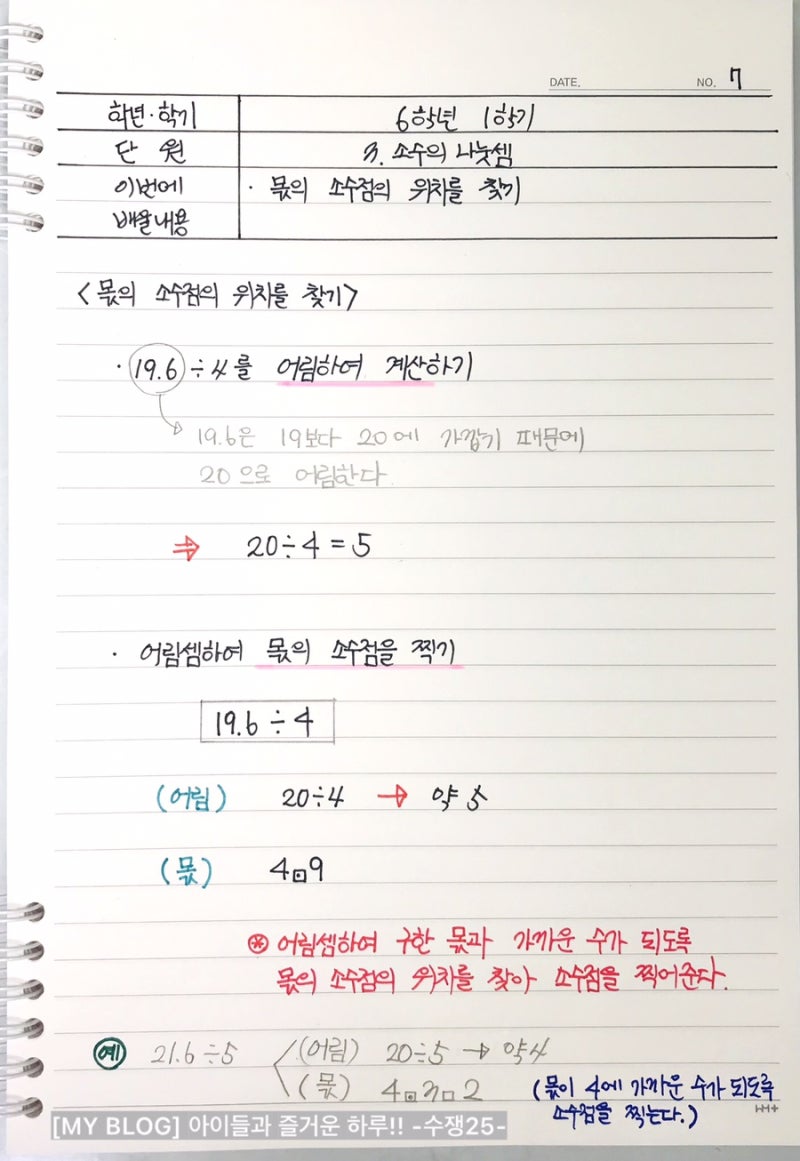 DATE. NO. 7
학년·학기 6학년 1학기
단 원 3. 소수의 나눗셈
이번에 · 몫의 소수점의 위치를 찾기
배울내용
<몫의 소수점의 위치를 찾기>
· 19.6 ÷ 4를 어림하여 계산하기
19.6은 19보다 20에 가깝기 때문에
20으로 어림한다.
⇒ 20÷4=5
· 어림셈하여 몫의 소수점을 찍기
19.6 ÷ 4
(어림) 20÷4 → 약 5
(몫) 4⊡9
⊛ 어림셈하여 구한 몫과 가까운 수가 되도록
몫의 소수점의 위치를 찾아 소수점을 찍어준다.
예 21.6÷5 (어림) 20÷5 → 약4
(몫) 4⊡3□2 (몫이 4에 가까운 수가 되도록
소수점을 찍는다.)
[MY BLOG] 아이들과 즐거운 하루!! -수쟁25-